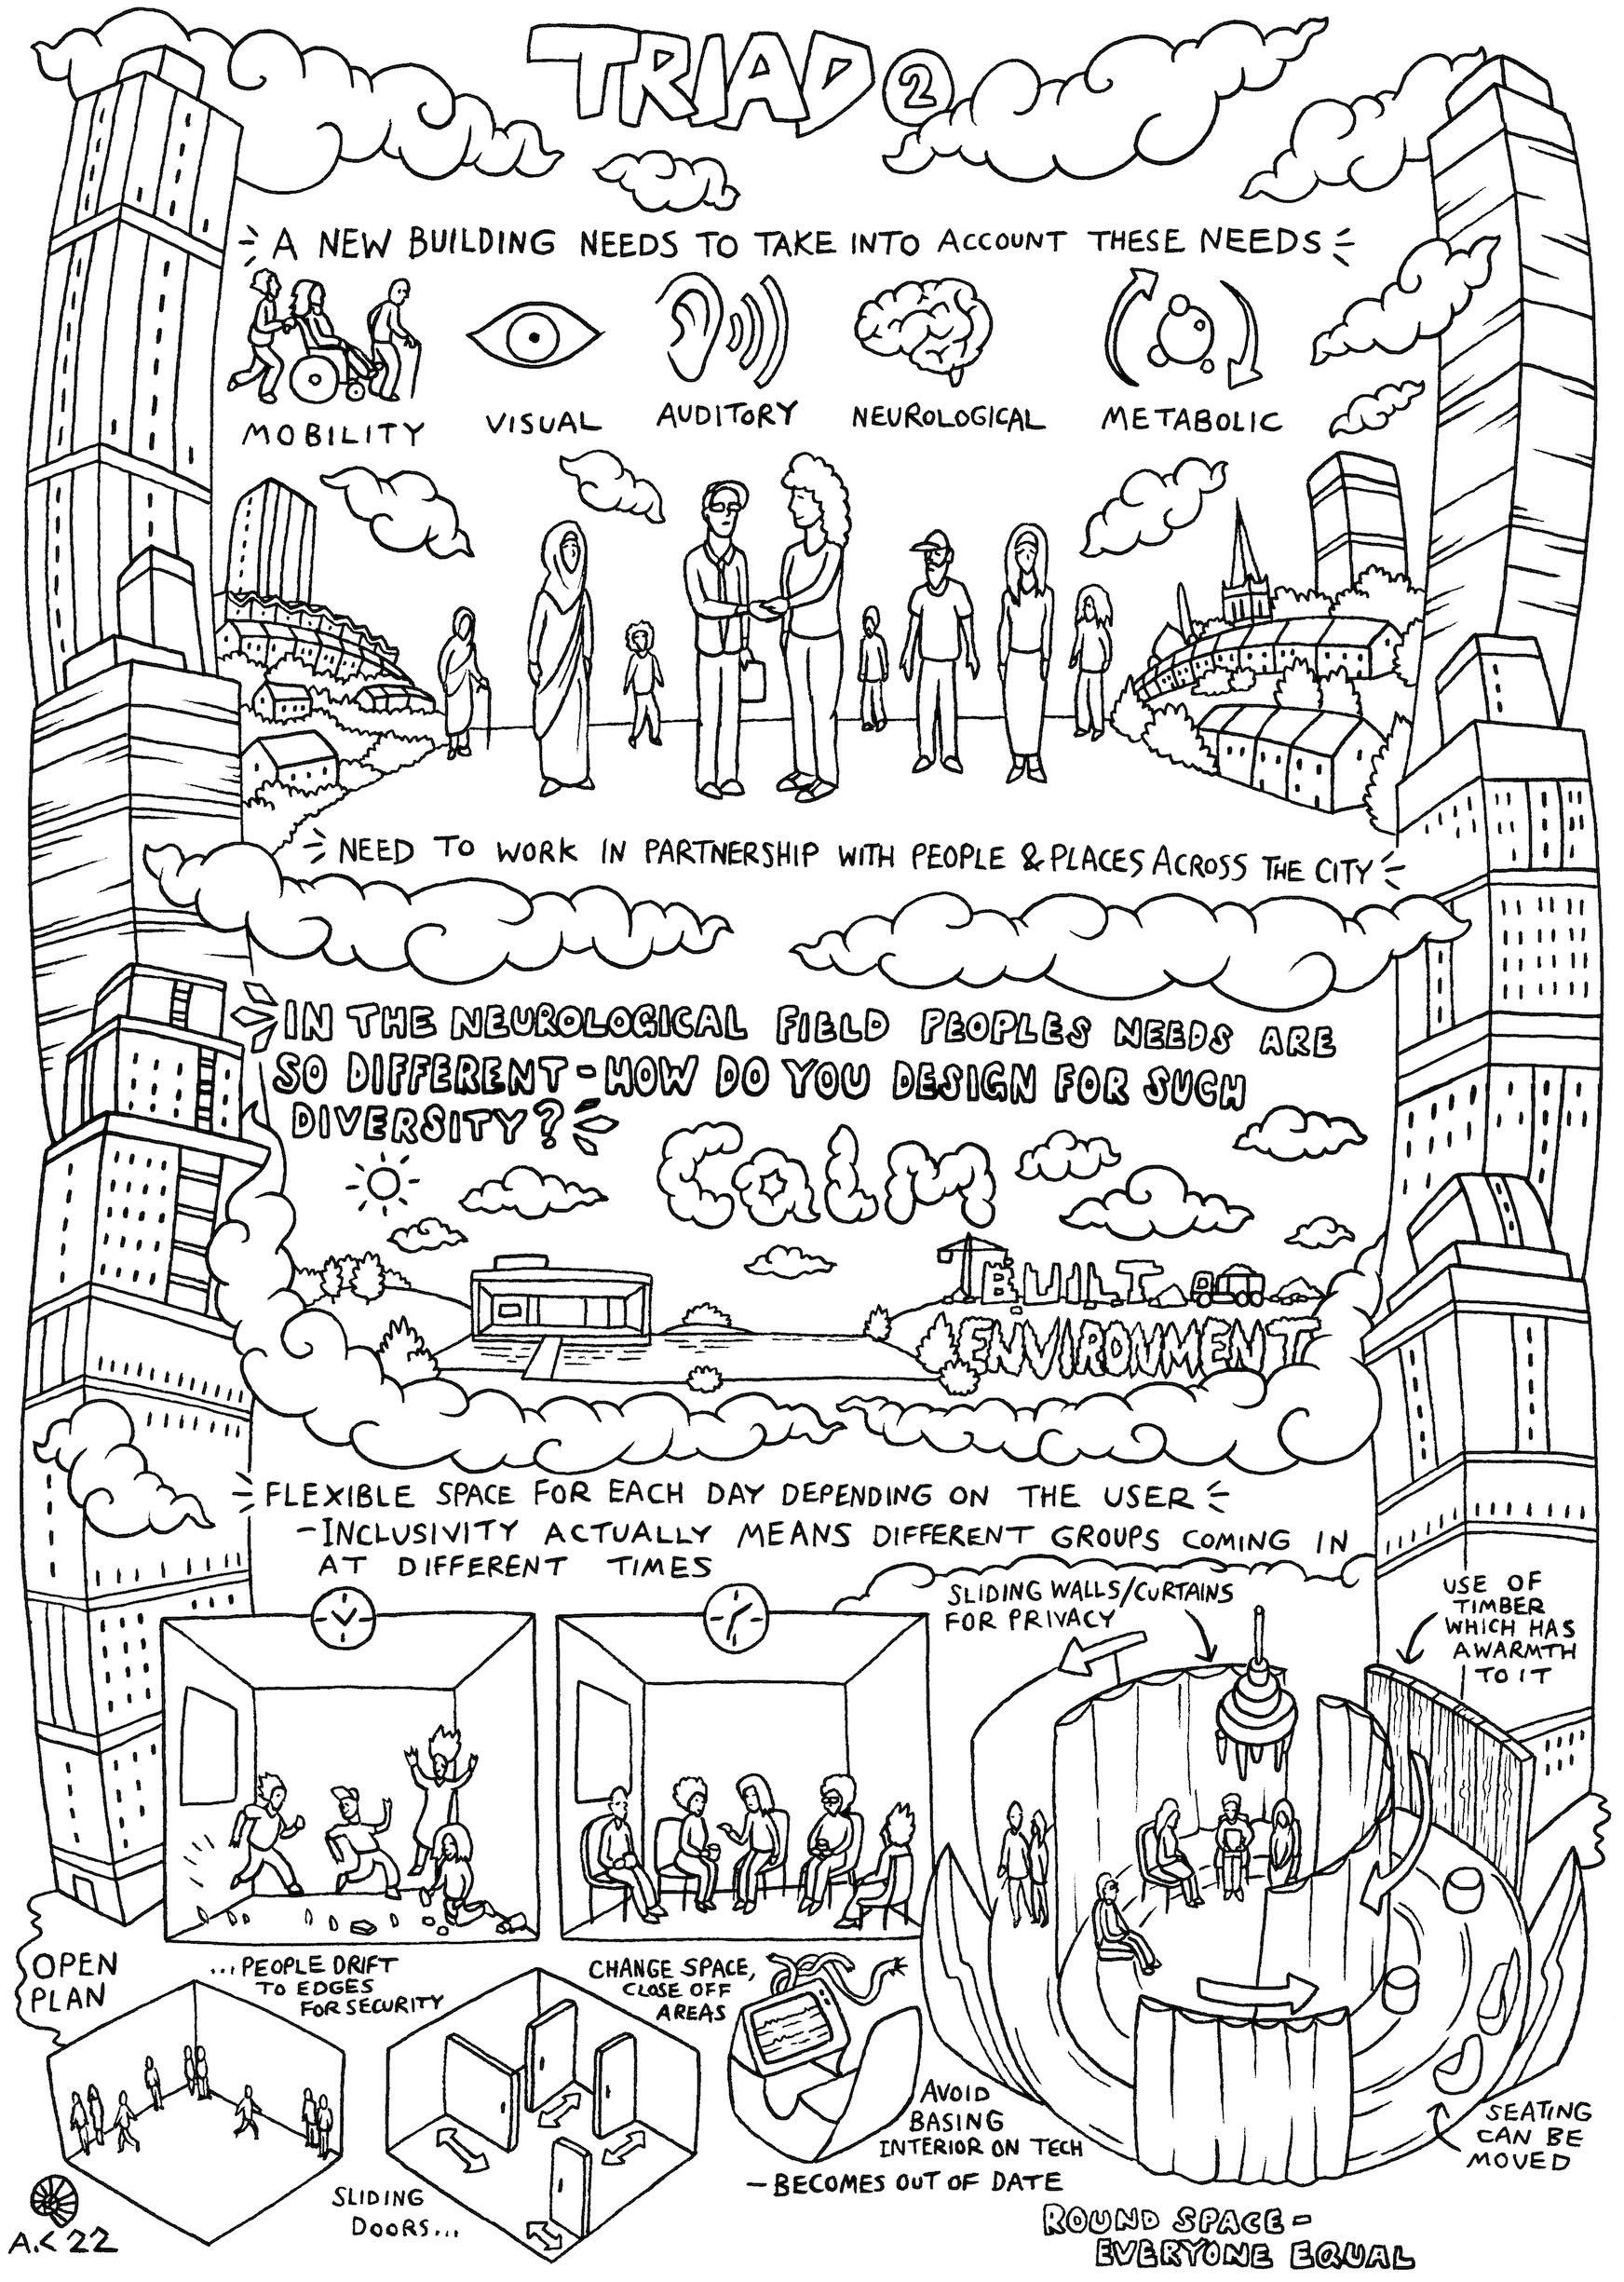 TRIAD 2
A NEW BUILDING NEEDS TO TAKE INTO ACCOUNT THESE NEEDS
MOBILITY
VISUAL
AUDITORY
NEUROLOGICAL
METABOLIC
NEED TO WORK IN PARTNERSHIP WITH PEOPLE & PLACES ACROSS THE CITY
IN THE NEUROLOGICAL FIELD PEOPLES NEEDS ARE
SO DIFFERENT - HOW DO YOU DESIGN FOR SUCH
DIVERSITY?
CALM
BUILT
ENVIRONMENT
FLEXIBLE SPACE FOR EACH DAY DEPENDING ON THE USER
- INCLUSIVITY ACTUALLY MEANS DIFFERENT GROUPS COMING IN
AT DIFFERENT TIMES
SLIDING WALLS/CURTAINS
FOR PRIVACY
USE OF
TIMBER
WHICH HAS
A WARMTH
TO IT
OPEN
PLAN
...PEOPLE DRIFT
TO EDGES
FOR SECURITY
SLIDING
DOORS...
CHANGE SPACE,
CLOSE OFF
AREAS
AVOID
BASING
INTERIOR ON TECH
- BECOMES OUT OF DATE
SEATING
CAN BE
MOVED
ROUND SPACE -
EVERYONE EQUAL
A.C 22